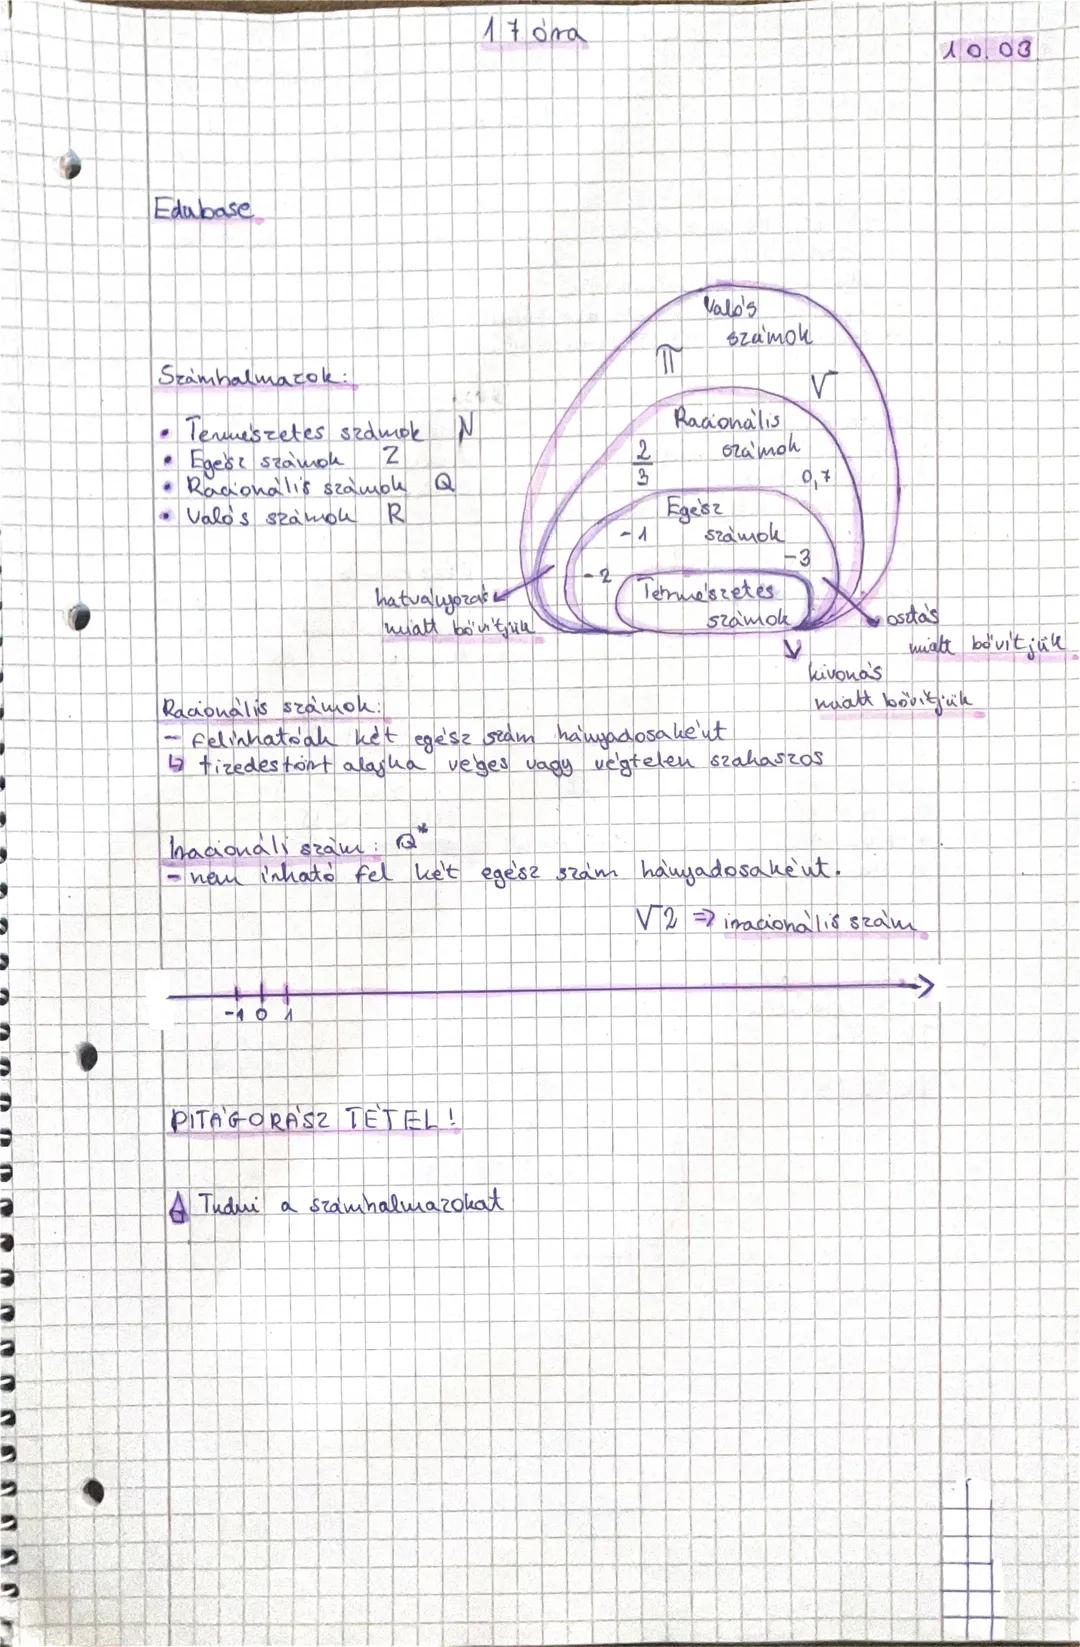 17 óra
10.03
Edubase
Számhalmazok:
• Természetes számok N
• Egész számok Z
• Racionális számok Q
• Valós számok R
Valós
számok
π
√
Racionális
számok
2
3
0,7
Egész
számok
-1
-3
-2
Természetes
számok
hatványozás
miatt bővítjük
osztás
miatt bővítjük
kivonás
miatt bővítjük
Racionális számok:
- felírhatóak két egész szám hányadosaként
↳ tizedestört alakja véges vagy végtelen szakaszos
Iracionáli szám: Q*
- nem írható fel két egész szám hányadosaként.
√2 => iracionális szám
-1 0 1
PITÁGORÁSZ TÉTEL!
Tudni a számhalmazokat